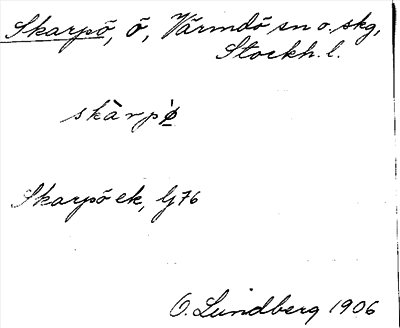 Skarpö, ö, Värmdö sn o. skg,
Stockh. l.
skàrpö̀
Skarpö ek, Gj 76
O. Lundberg 1906